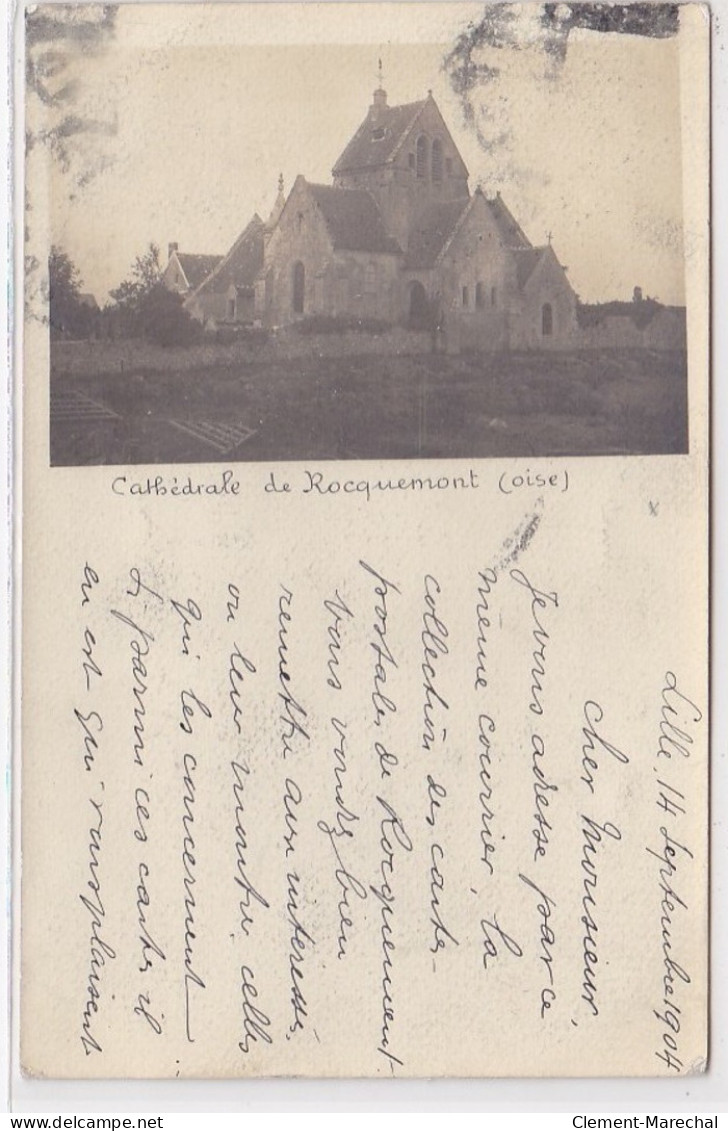 Cathédrale de Rocquemont (oise)
Lille, 14 Septembre 1904
Cher Monsieur,
Je vous adresse par ce
même courrier, la
collection des cartes
postales de Rocquemont
vous voudrez bien
remettre aux intéressés,
ou leur montrer, celles
qui les concernent
Si parmi ces cartes il
en est qui vous plaisent
Clement-Marechal